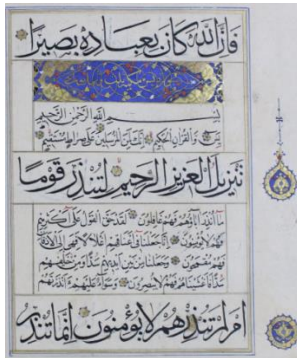 فَإِنَّ اللَّهَ كَانَ بِعِبَادِهِ بَصِيرًا
بِسْمِ اللَّهِ الرَّحْمَٰنِ الرَّحِيمِ
يس وَالْقُرْآنِ الْحَكِيمِ إِنَّكَ لَمِنَ الْمُرْسَلِينَ عَلَى صِرَاطٍ مُسْتَقِيمٍ
تَنْزِيلَ الْعَزِيزِ الرَّحِيمِ لِتُنْذِرَ قَوْمًا
مَا أُنْذِرَ آبَاؤُهُمْ فَهُمْ غَافِلُونَ لَقَدْ حَقَّ الْقَوْلُ عَلَى أَكْثَرِهِمْ
فَهُمْ لَا يُؤْمِنُونَ إِنَّا جَعَلْنَا فِي أَعْنَاقِهِمْ أَغْلَالًا فَهِيَ إِلَى الْأَذْقَانِ
فَهُمْ مُقْمَحُونَ وَجَعَلْنَا مِنْ بَيْنِ أَيْدِيهِمْ سَدًّا وَمِنْ خَلْفِهِمْ
سَدًّا فَأَغْشَيْنَاهُمْ فَهُمْ لَا يُبْصِرُونَ وَسَوَاءٌ عَلَيْهِمْ أَأَنْذَرْتَهُمْ
أَمْ لَمْ تُنْذِرْهُمْ لَا يُؤْمِنُونَ إِنَّمَا تُنْذِرُ